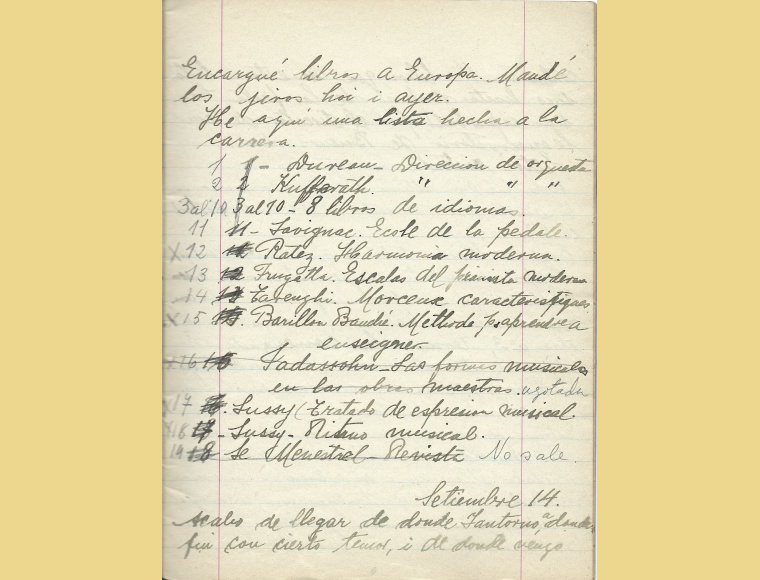 Encargué libros a Europa. Mandé
los jiros hoi i ayer.
He aquí una lista hecha a la
carrera.
1 1 - Dureau - Direcion de orquesta
2 2 Kufferath. " " "
3 al 10 3 al 10 - 8 libros de idiomas.
11 11 - Lavignac. Ecole de la pedale.
x 12 Ratez. Harmonia moderna.
-13 12 Frugatta. Escalas del pianista moderno
-14 13 Tarenghi. Morceux caracteristiques
x 15 Barillon Bauché. Methode p. aprendre a
enseigner.
x 16 15 Jadassohn - Las formas musicales
en las obras maestras. agotada
x 17 16. Lussy (Tratado de espresion musical.
x 18 17 - Lussy - Ritmo musical.
19 18 Le Menestrel - Revista No sale.
Setiembre 14.
Acabo de llegar de donde Santorno, a donde
fui con cierto temor, i de donde vengo